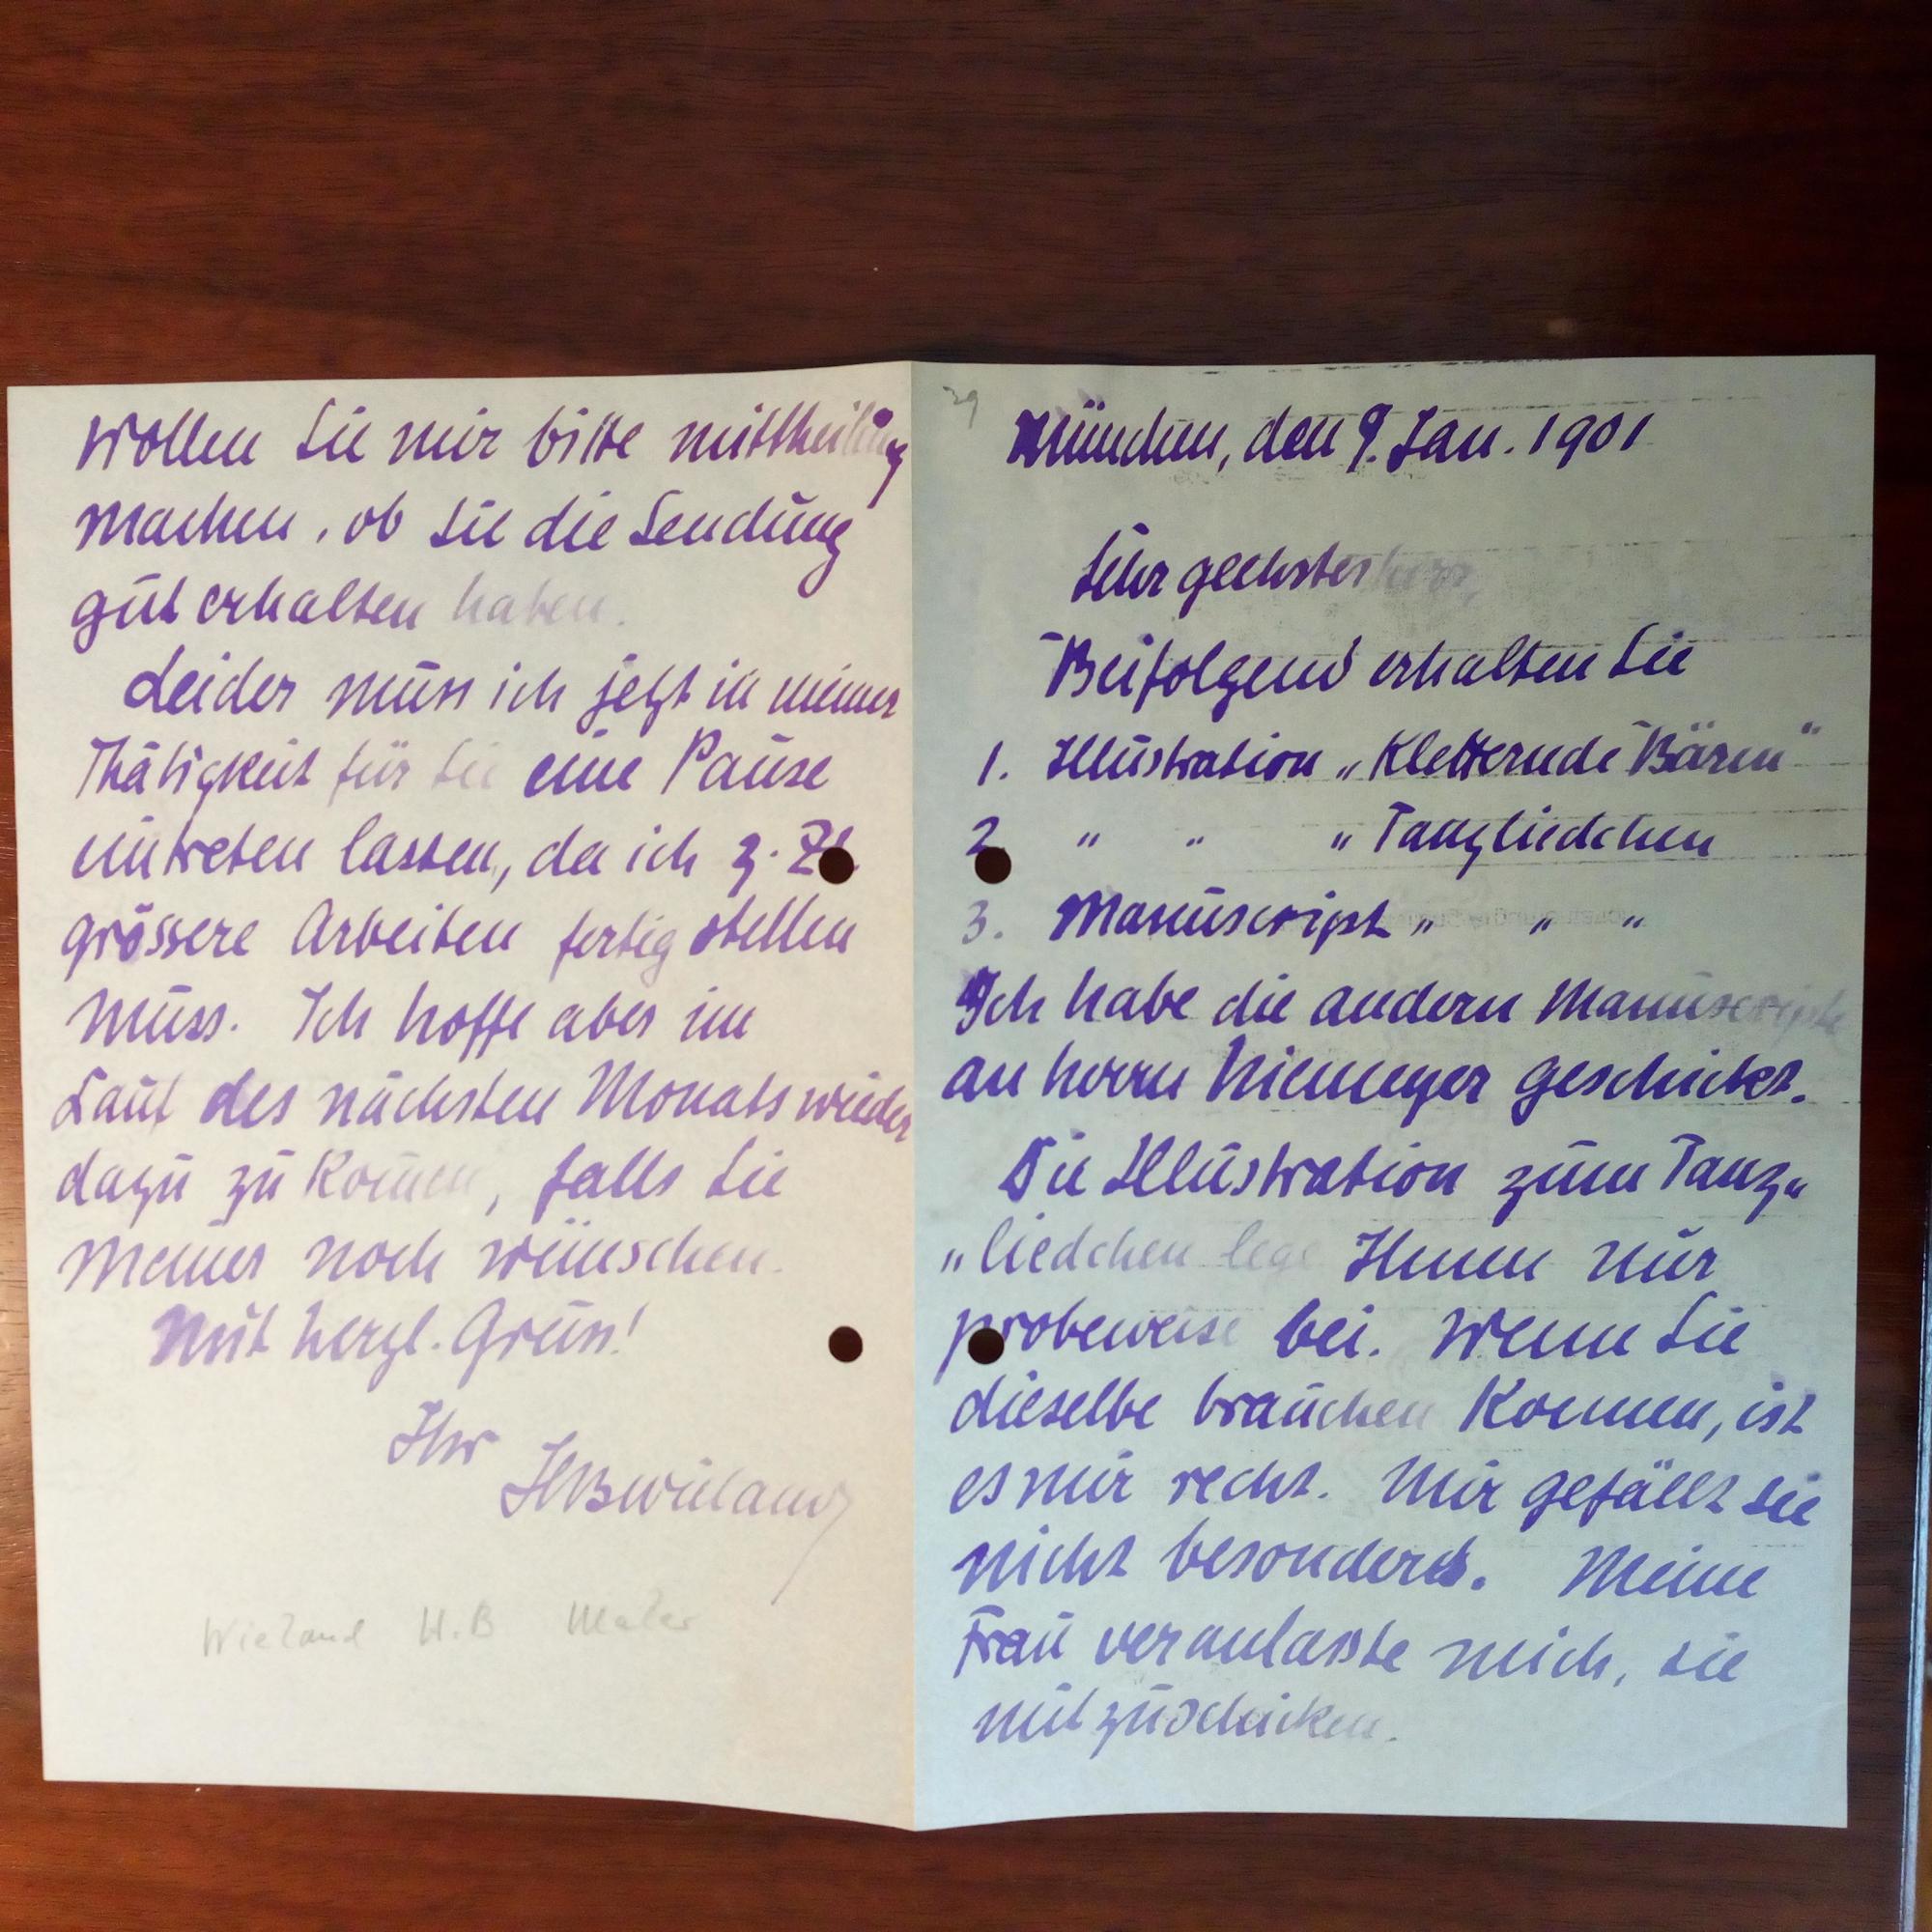 29
München, den 9. Jan. 1901
Sehr geehrter Herr,
Beifolgend erhalten Sie
1. Illustration „Kletternde Bären“
2. " " „Tanzliedchen
3. Manuscript " " "
Ich habe die andern Manuscripte
an Herrn Niemeyer geschickt.
Die Illustration zum Tanz„
„liedchen lege Ihnen nur
probeweise bei. Wenn Sie
dieselbe brauchen koennen, ist
es mir recht. Mir gefällt sie
nicht besonders. Meine
Frau veranlasste mich, sie
mitzuschicken.
Wollen Sie mir bitte mittheilung
machen, ob Sie die Sendung
gut erhalten haben.
Leider muss ich jetzt in meiner
Thätigkeit für Sie eine Pause
eintreten lassen, da ich z. Zt.
grössere Arbeiten fertig stellen
muss. Ich hoffe aber im
Lauf des nächsten Monats wieder
dazu zu kom̄en, falls Sie
meiner noch wünschen.
Mit herzl. Gruss!
Ihr
HBWieland
Wieland H.B Maler